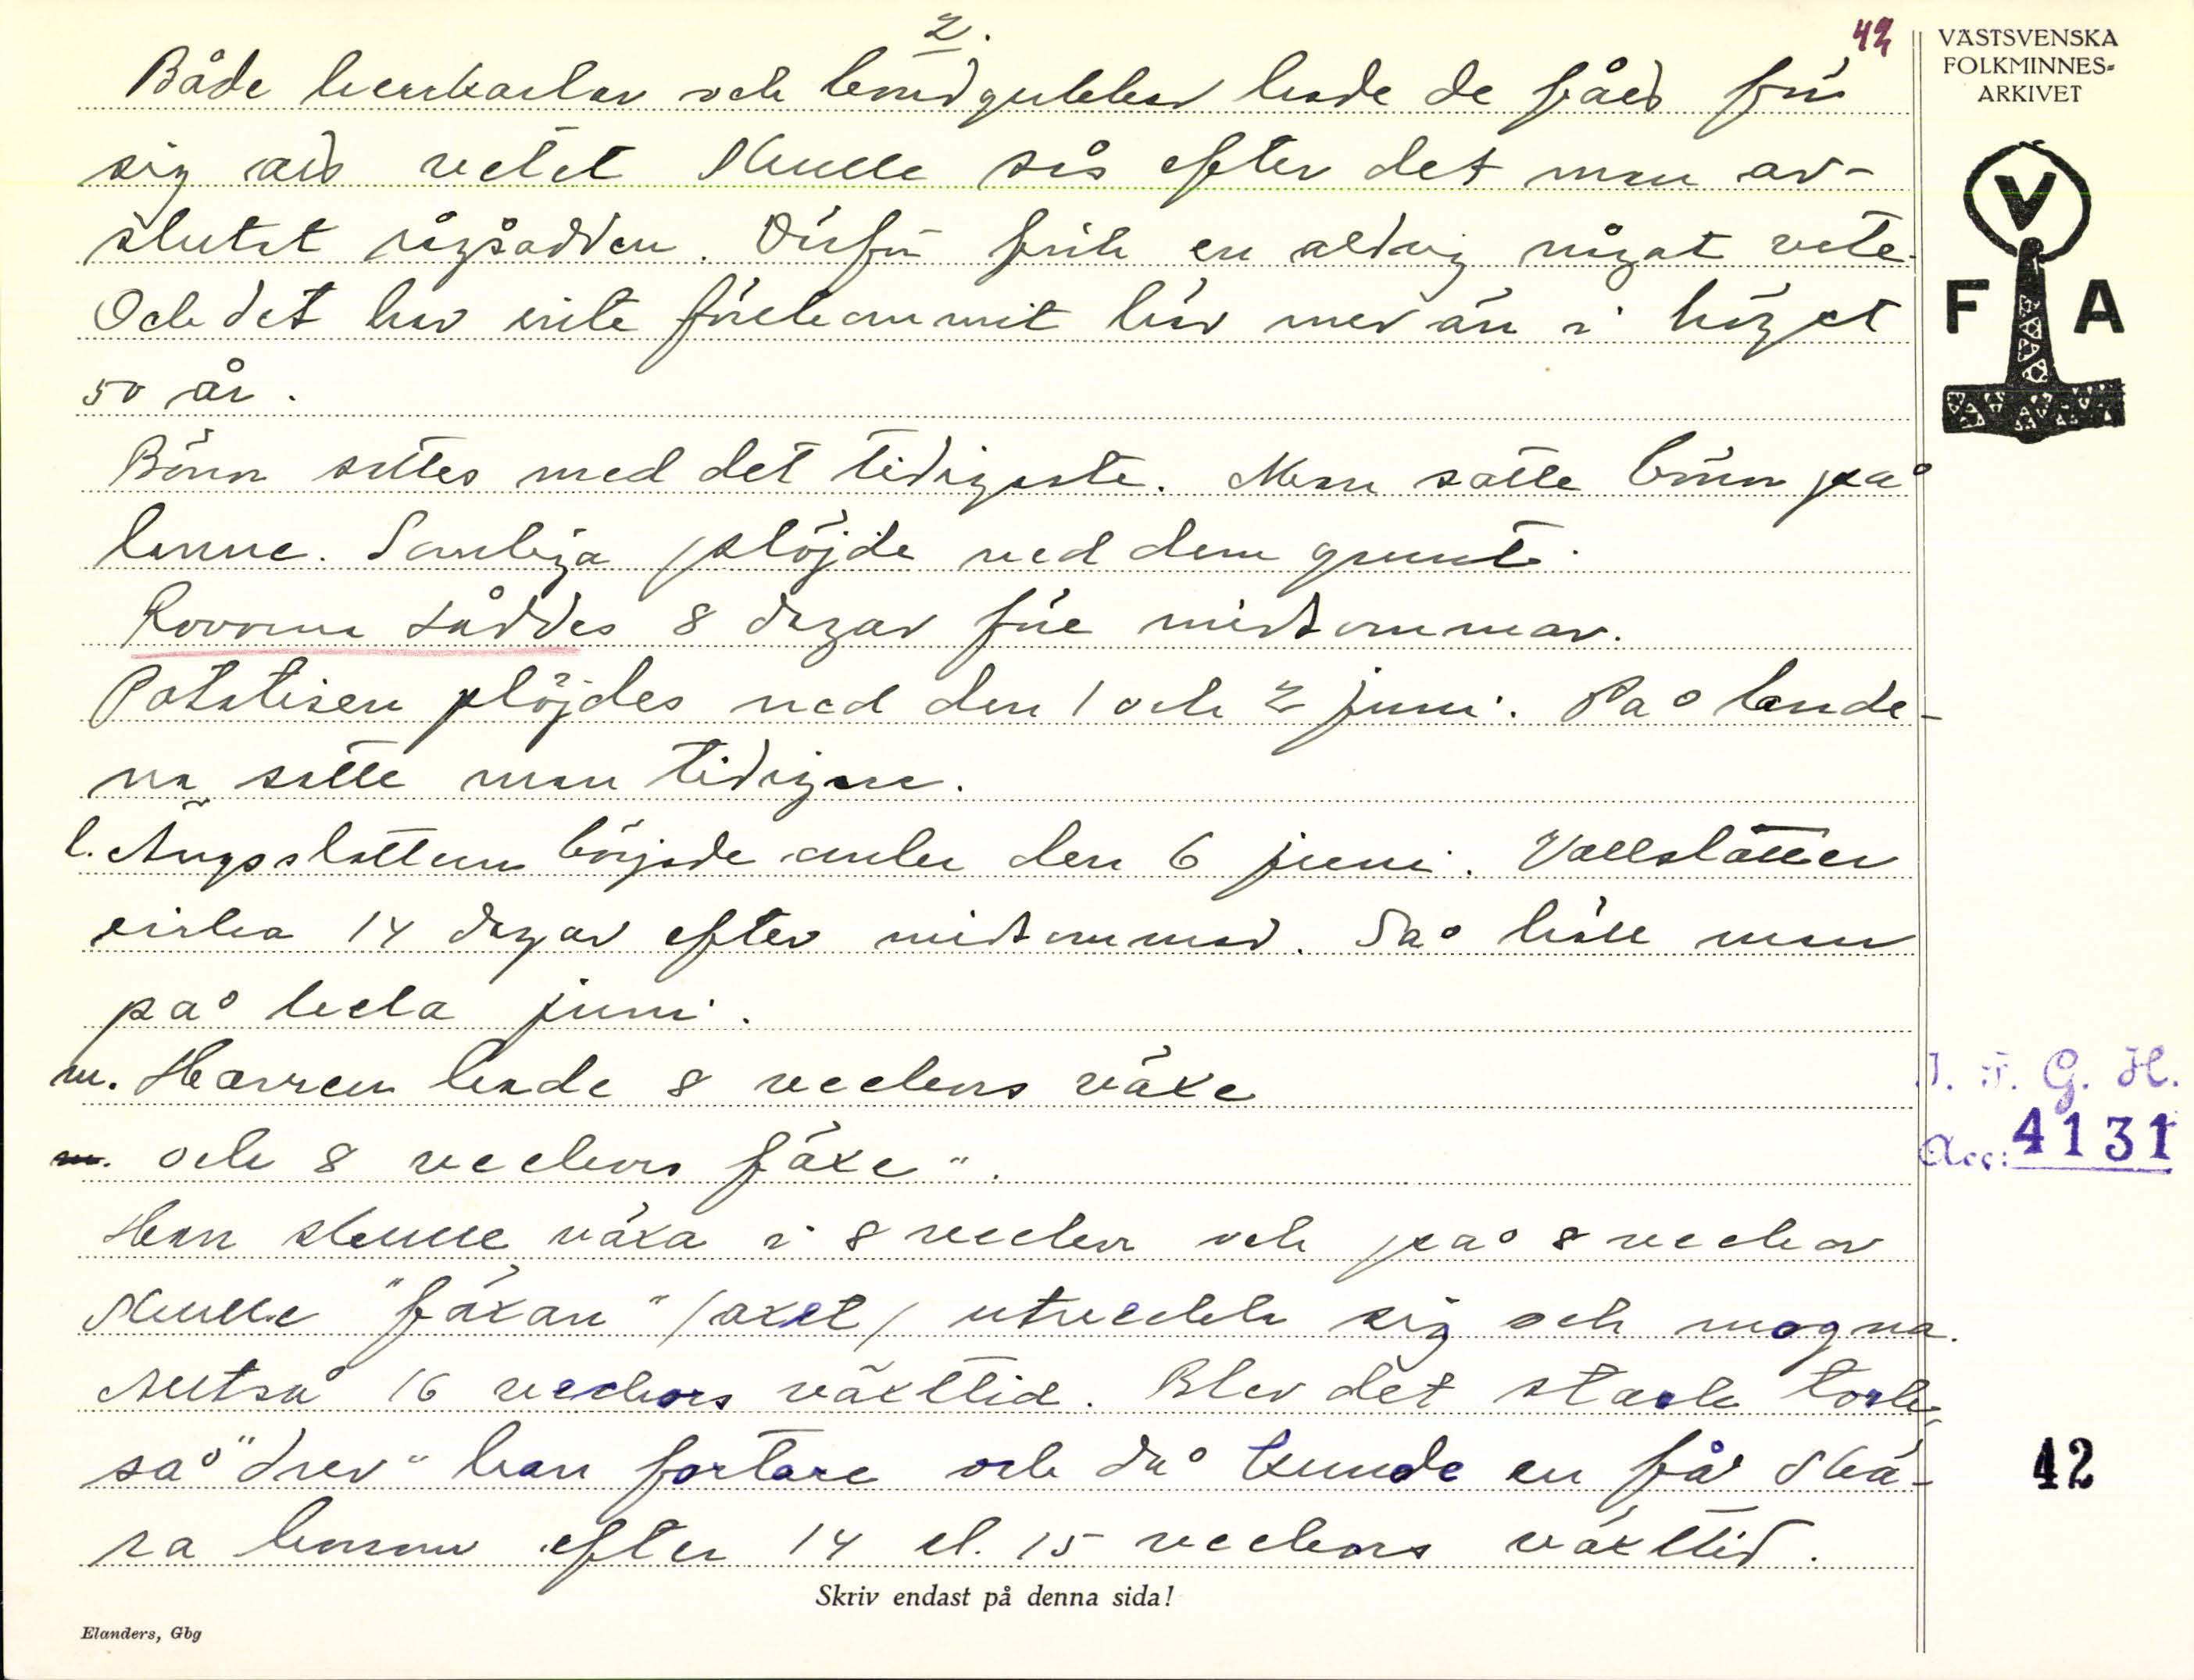 2.
42
Både herrkarlar och bondgubbar hade de fått för
sig att vetet skulle sås efter det man av-
slutat rågsådden. Därför fick en aldrig något vete.
Och det har inte förekommit här mer än i höjet
50 år.
Bönn sattes med det tidigaste. Man satte bönn på
lanne. Somliga plöjde ned dem grunt.
Rovorna såddes 8 dagar före midsommar.
Potatisen plöjdes ned den 1 och 2 juni. På lande-
na satte man tidigare.
l. Ängsslåttern började omkr den 6 juni. Vallslåtter
cirka 14 dagar efter midsommar. Så höll man
på hela juni.
m. Havren hade 8 veckors växe
m. och 8 veckors fäxe".
Han skulle växa i 8 veckor och på 8 veckor
skulle "fäxan" /axet/ utveckla sig och mogna.
Alltså 16 veckors växttid. Blev det stark torka,
så "drev" han fortare och då kunde en få skä-
ra honom efter 14 el. 15 veckors växttid.
Skriv endast på denna sida!
Elanders, Gbg
VÄSTSVENSKA
FOLKMINNES-
ARKIVET
V
F A
I. F. G. H.
Acc: 4131
42